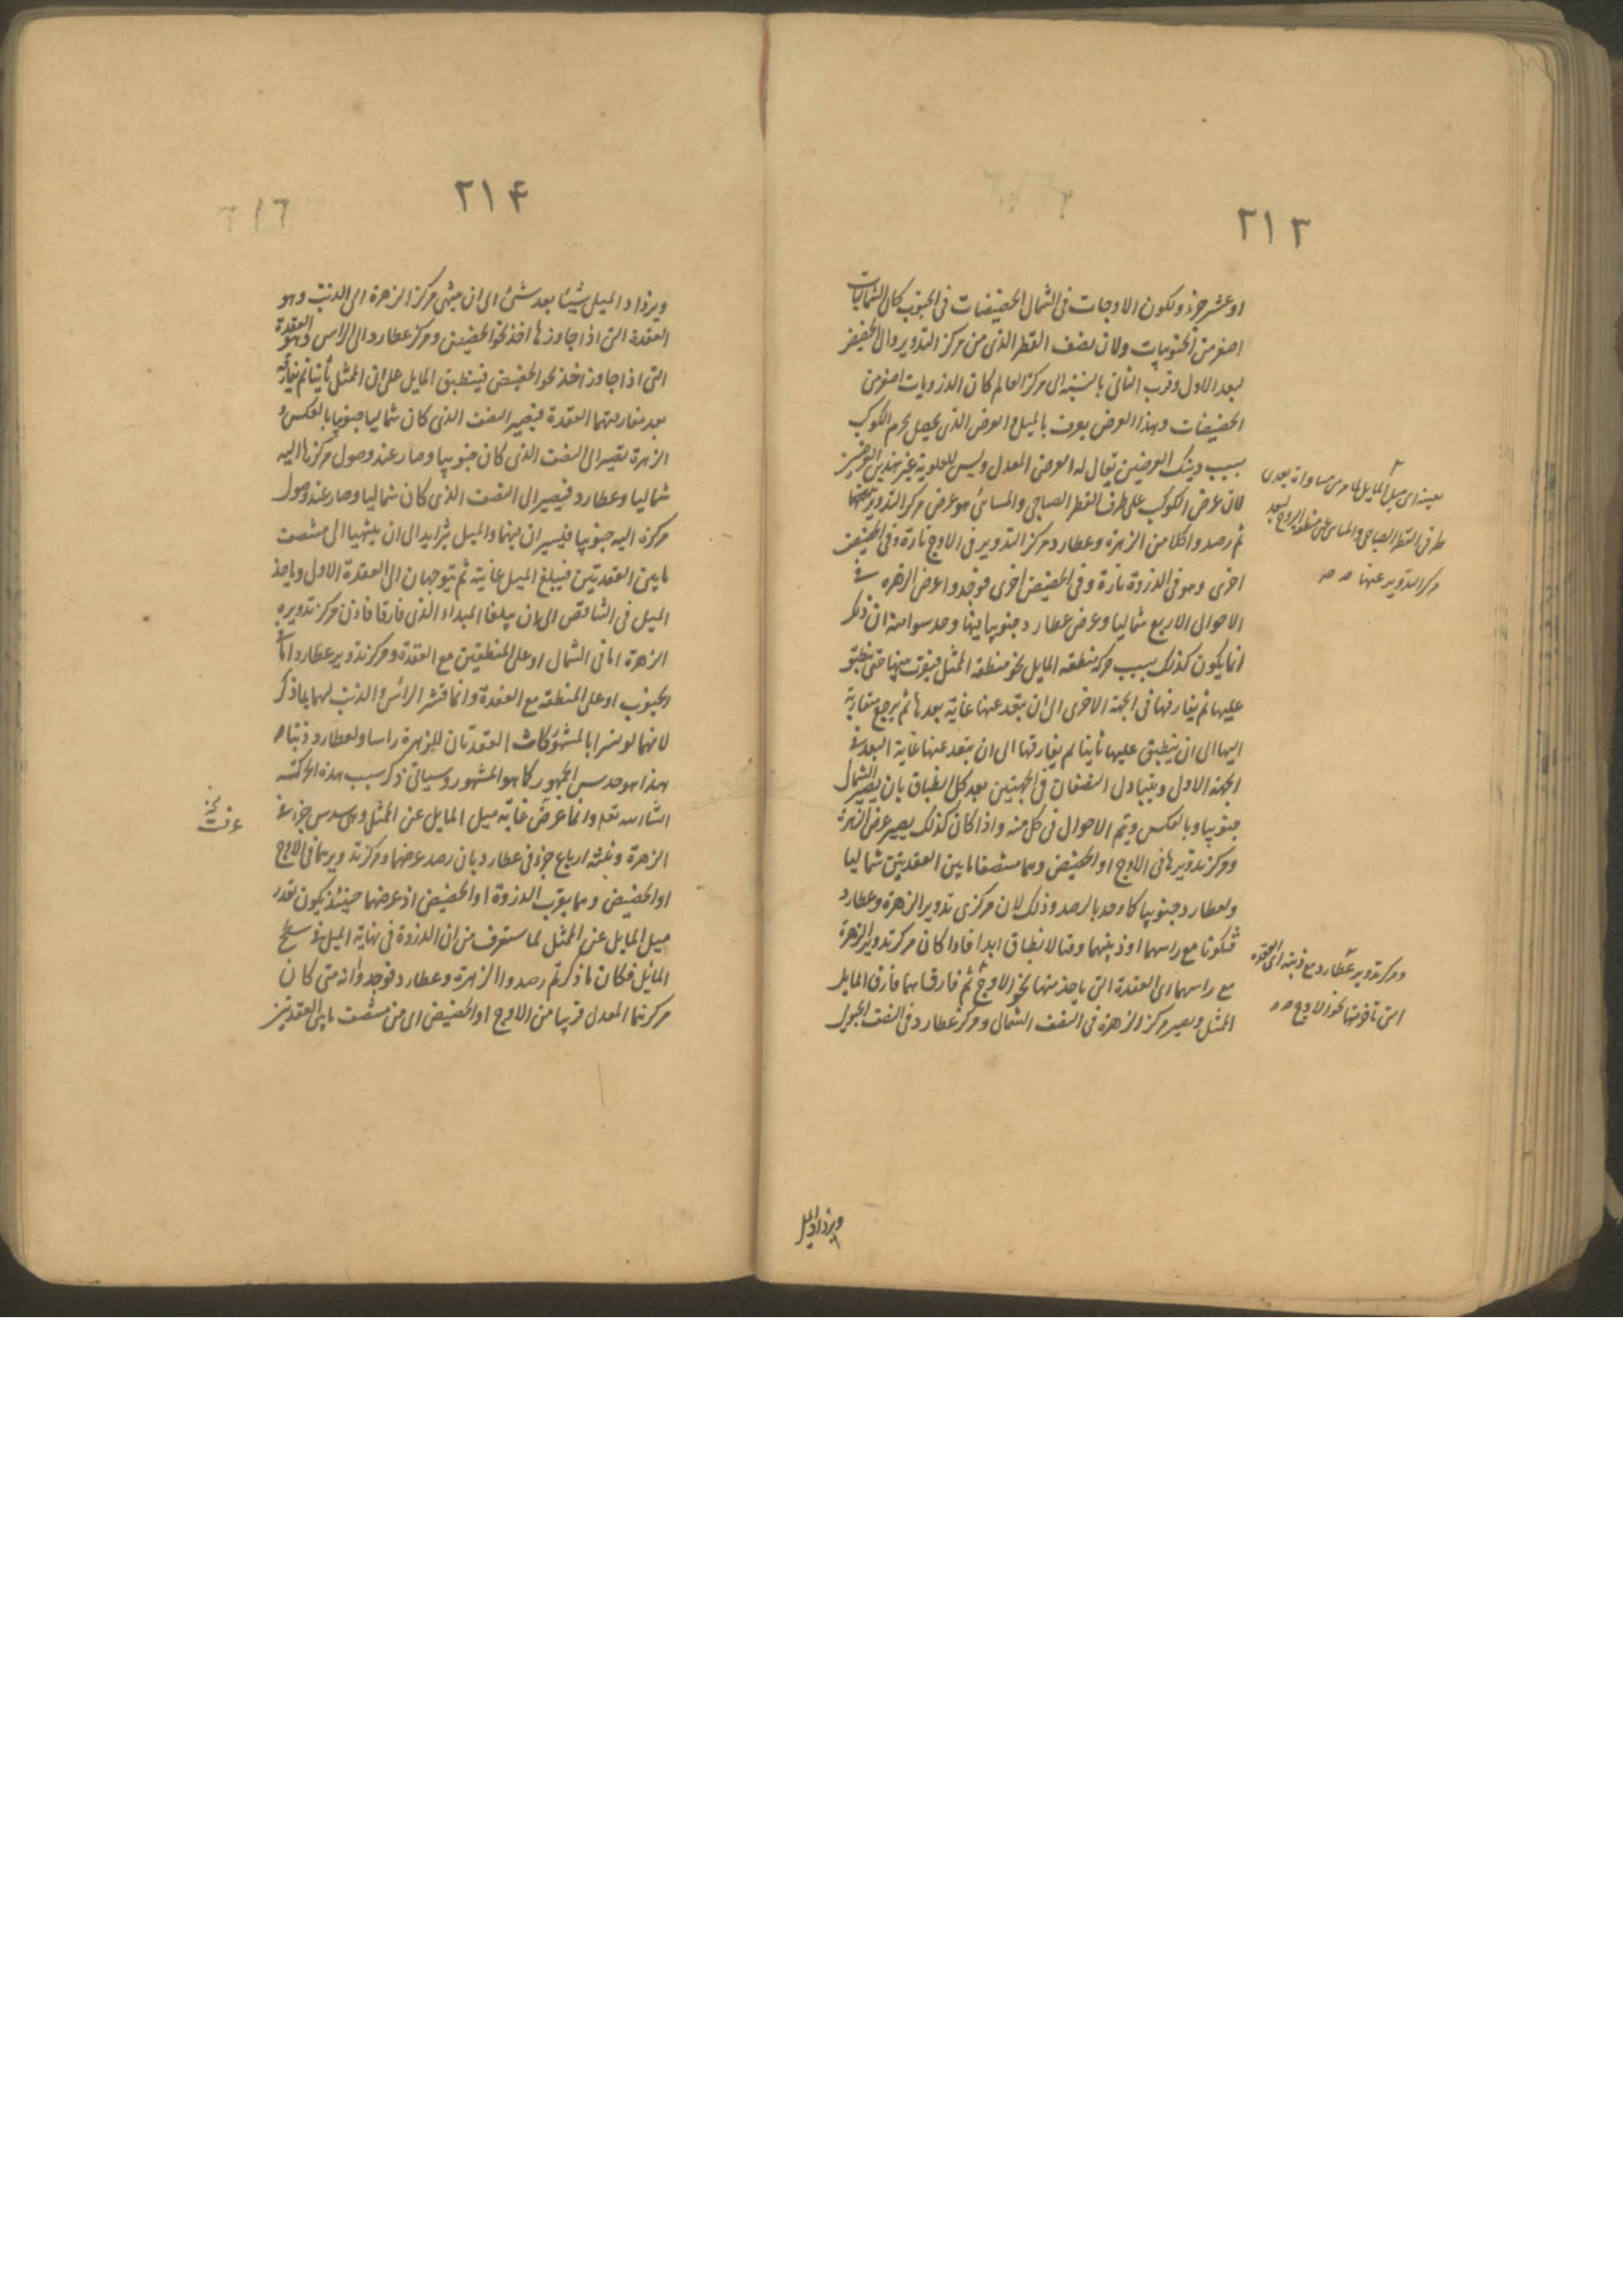 ٢١٣
او عشر جزء ولكون الاوجات فى الشمال الحضيضات فى الجنوب كان الشماليات
اصغر من الجنوبيات ولان نصف القطر الذى من مركز التدوير والى الحضيض
لبعد الاول وقرب الثانى بالنسبة الى مركز العالم كان الذرويات اصغر من
الحضيضات وهذا العرض يعرف بالميل والعرض الذى يحصل لجرم الكوكب
بسبب ذينك العرضين يقال له العرض المعدل وليس للعلوية غير هذين العرضين
لان عرض الكوكب على طرف القطر الصباحى والمسائى هو عرض مركز التدوير
ثم رصدوا كلا من الزهرة وعطارد ومركز التدوير فى الاوج تارة وفى الحضيض
اخرى وهو فى الذروة تارة وفى الحضيض اخرى فوجدوا عرض الزهره فى
الاحوال الاربع شماليا وعرض عطارد جنوبيا فيها وحدسوا منه ان ذلك
انما يكون كذلك بسبب حركة منطقه المايل نحو منطقة الممثل فيقرب منها حتى ينطبق
عليها ثم يفارقها فى الجهة الاخرى الى ان تبعد عنها غاية بعدها ثم يرجع متقاربة
اليها الى ان ينطبق عليها ثانيا ثم يفارقها الى ان يبعد عنها غاية البعد فى
الجهة الاول ويتبادل النصفان فى الجهتين بعد كل انطباق بان يصير الشمال
جنوبيا وبالعكس ويتم الاحوال فى كل سنه واذا كان كذلك يصير عرض الزهرة
ومركز تدويرها فى الاوج او الحضيض وهما منتصفا مابين العقدتين شماليا
ولعطارد جنوبيا كما وجد بالرصد وذلك لان مركزى تدوير الزهرة وعطارد
تكونا مع راسهما او ذنبهما وقت الانطباق ابدا فاذا كان مركز تدوير الزهرة
مع راسهما اى العقدة التى ياخذ منها نحو الاوج ثم فارقاهما فارق المايل
الممثل ويصير مركز الزهرة فى النصف الشمال ومركز عطارد فى النصف الجنوبى
طرفى القطر الصباحى والمسائى عن منطقة البروج لبعد
مركز التدوير عنها
ومركز تدوير عطارد مع ذنبه اى العقدة
التى تاخذ منها نحو الاوج
ويزداد الميل
٢١۴
ويزداد الميل شيئا بعد شئ الى ان ينتهى مركز الزهرة الى الذنب وهو
العقدة التى اذا جاوزها اخذ نحو الحضيض ومركز عطارد الى الراس وهو العقدة
التى اذا جاوز اخذ نحو الحضيض فينطبق المايل على ان الممثل ثانيا ثم يفارقه
بعد مفارقتهما العقدة فيصير النصف الذى كان شماليا جنوبيا بالعكس و
الزهرة تصير الى النصف الذى كان جنوبيا وصار عند وصول مركزها اليه
شماليا وعطارد فيصير الى النصف الذى كان شماليا وصار عند وصول
مركزه اليه جنوبيا فيسيران فيهما والميل يتزايد الى ان ينتهيا الى منتصف
مابين العقدتين فيبلغ الميل غايته ثم يتوجهان الى العقدة الاول وياخذ
الميل فى التناقص الى ان يبلغا المبداء الذى فارقا فاذن مركز تدويره
الزهرة اما فى الشمال او على المنطقتين مع العقدة ومركز تدوير عطارد اما فى
الجنوب او على المنطقه مع العقدة وانما فسّر الراس والذنب لهما بما ذكر
لانهما لو فسرا بالمشهور كانت العقدتان للزهرة راسا ولعطارد ذنبا
هذا هو حدس الجمهور كما هو المشهور وسياتى ذكر سبب هذه الحركة
انشاء الله تع وانما عرض غاية ميل المايل عن الممثل وهى سدس جزء فى
الزهرة وثلثة ارباع جزء فى عطارد بان رصد عرضهما ومركز تدويرهما فى الاوج
او الحضيض وهما بقرب الذروة او الحضيض اذ عرضهما حينئذ يكون بقدر
ميل المايل عن الممثل لما ستعرف من ان الذروة فى نهاية الميل فى سطح
المايل فكان ما ذكر ثم رصدوا الزهرة وعطارد فوجدوا انه متى كان
مركزهما المعدل قريبا من الاوج او الحضيض اى من منتصف مابين العقدتين
عرفت